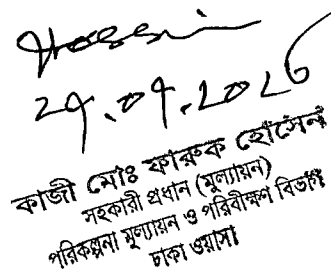 Hossain
29.09.2026
কাজী মোঃ ফারুক হোসেন
সহকারী প্রধান (মূল্যায়ন)
পরিকল্পনা মূল্যায়ন ও পরিবীক্ষণ বিভাগ
ঢাকা ওয়াসা